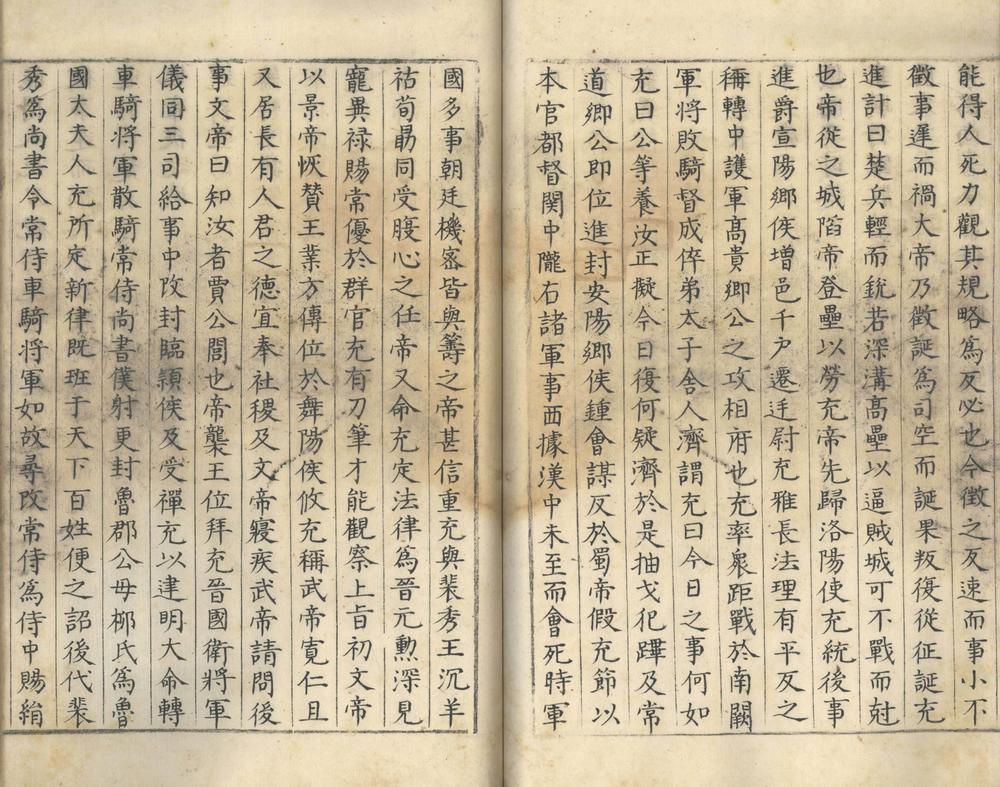 能得人死力觀其規略為反必也今徵之反速而事小不
徵事遲而禍大帝乃徵誕為司空而誕果叛復從征誕充
進計曰楚兵輕而銳若深溝髙壘以逼賊城可不戰而尅
也帝從之城䧟帝登壘以勞充帝先歸洛陽使充統後事
進爵宣陽鄉侯増邑千戸遷廷尉充雅長法理有平反之
稱轉中護軍髙貴鄉公之攻相府也充率衆距戰於南闕
軍將敗騎督成倅弟太子舍人濟謂充曰今日之事何如
充曰公等養汝正擬今日復何疑濟於是抽戈犯蹕及常
道鄉公即位進封安陽鄉侯鍾會謀反於蜀帝假充節以
本官都督関中隴右諸軍事西據漢中未至而會死時軍
國多事朝廷機宻皆與籌之帝甚信重充與裴秀王沉羊
祜荀勗同受腹心之任帝又命充定法律為晉元勲深見
寵異禄賜常優於群官充有刀筆才能觀察上旨初文帝
以景帝恢賛王業方傳位於舞陽侯攸充稱武帝寛仁且
又居長有人君之德宜奉社稷及文帝寢疾武帝請問後
事文帝曰知汝者賈公閭也帝襲王位拜充晉國衛將軍
儀同三司給事中改封臨頴侯及受禪充以建明大命轉
車騎將軍散騎常侍尚書僕射更封魯郡公母栁氏為魯
國太夫人充所定新律既班于天下百姓便之詔後代裴
秀為尚書令常侍車騎將軍如故尋改常侍為侍中賜絹